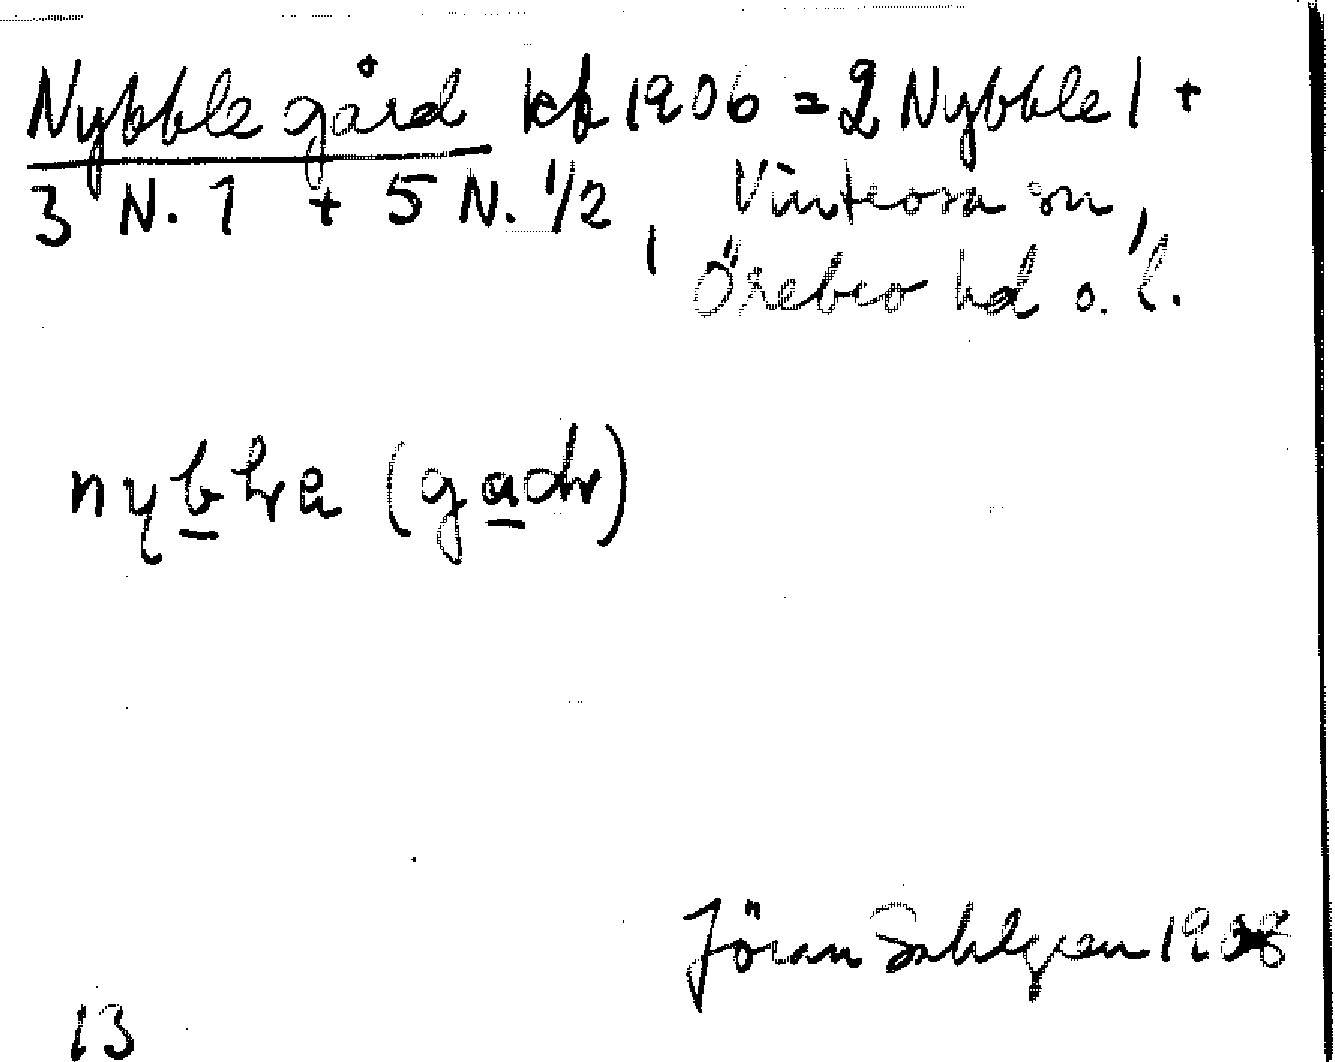 Nybble gård kf 1906 = 2 Nybble 1 +
3 N. 1 + 5 N. 1/2, Vintrosa sn,
Örebro hd o. l.
(gadr)
Jöran Sahlgren 1908
13